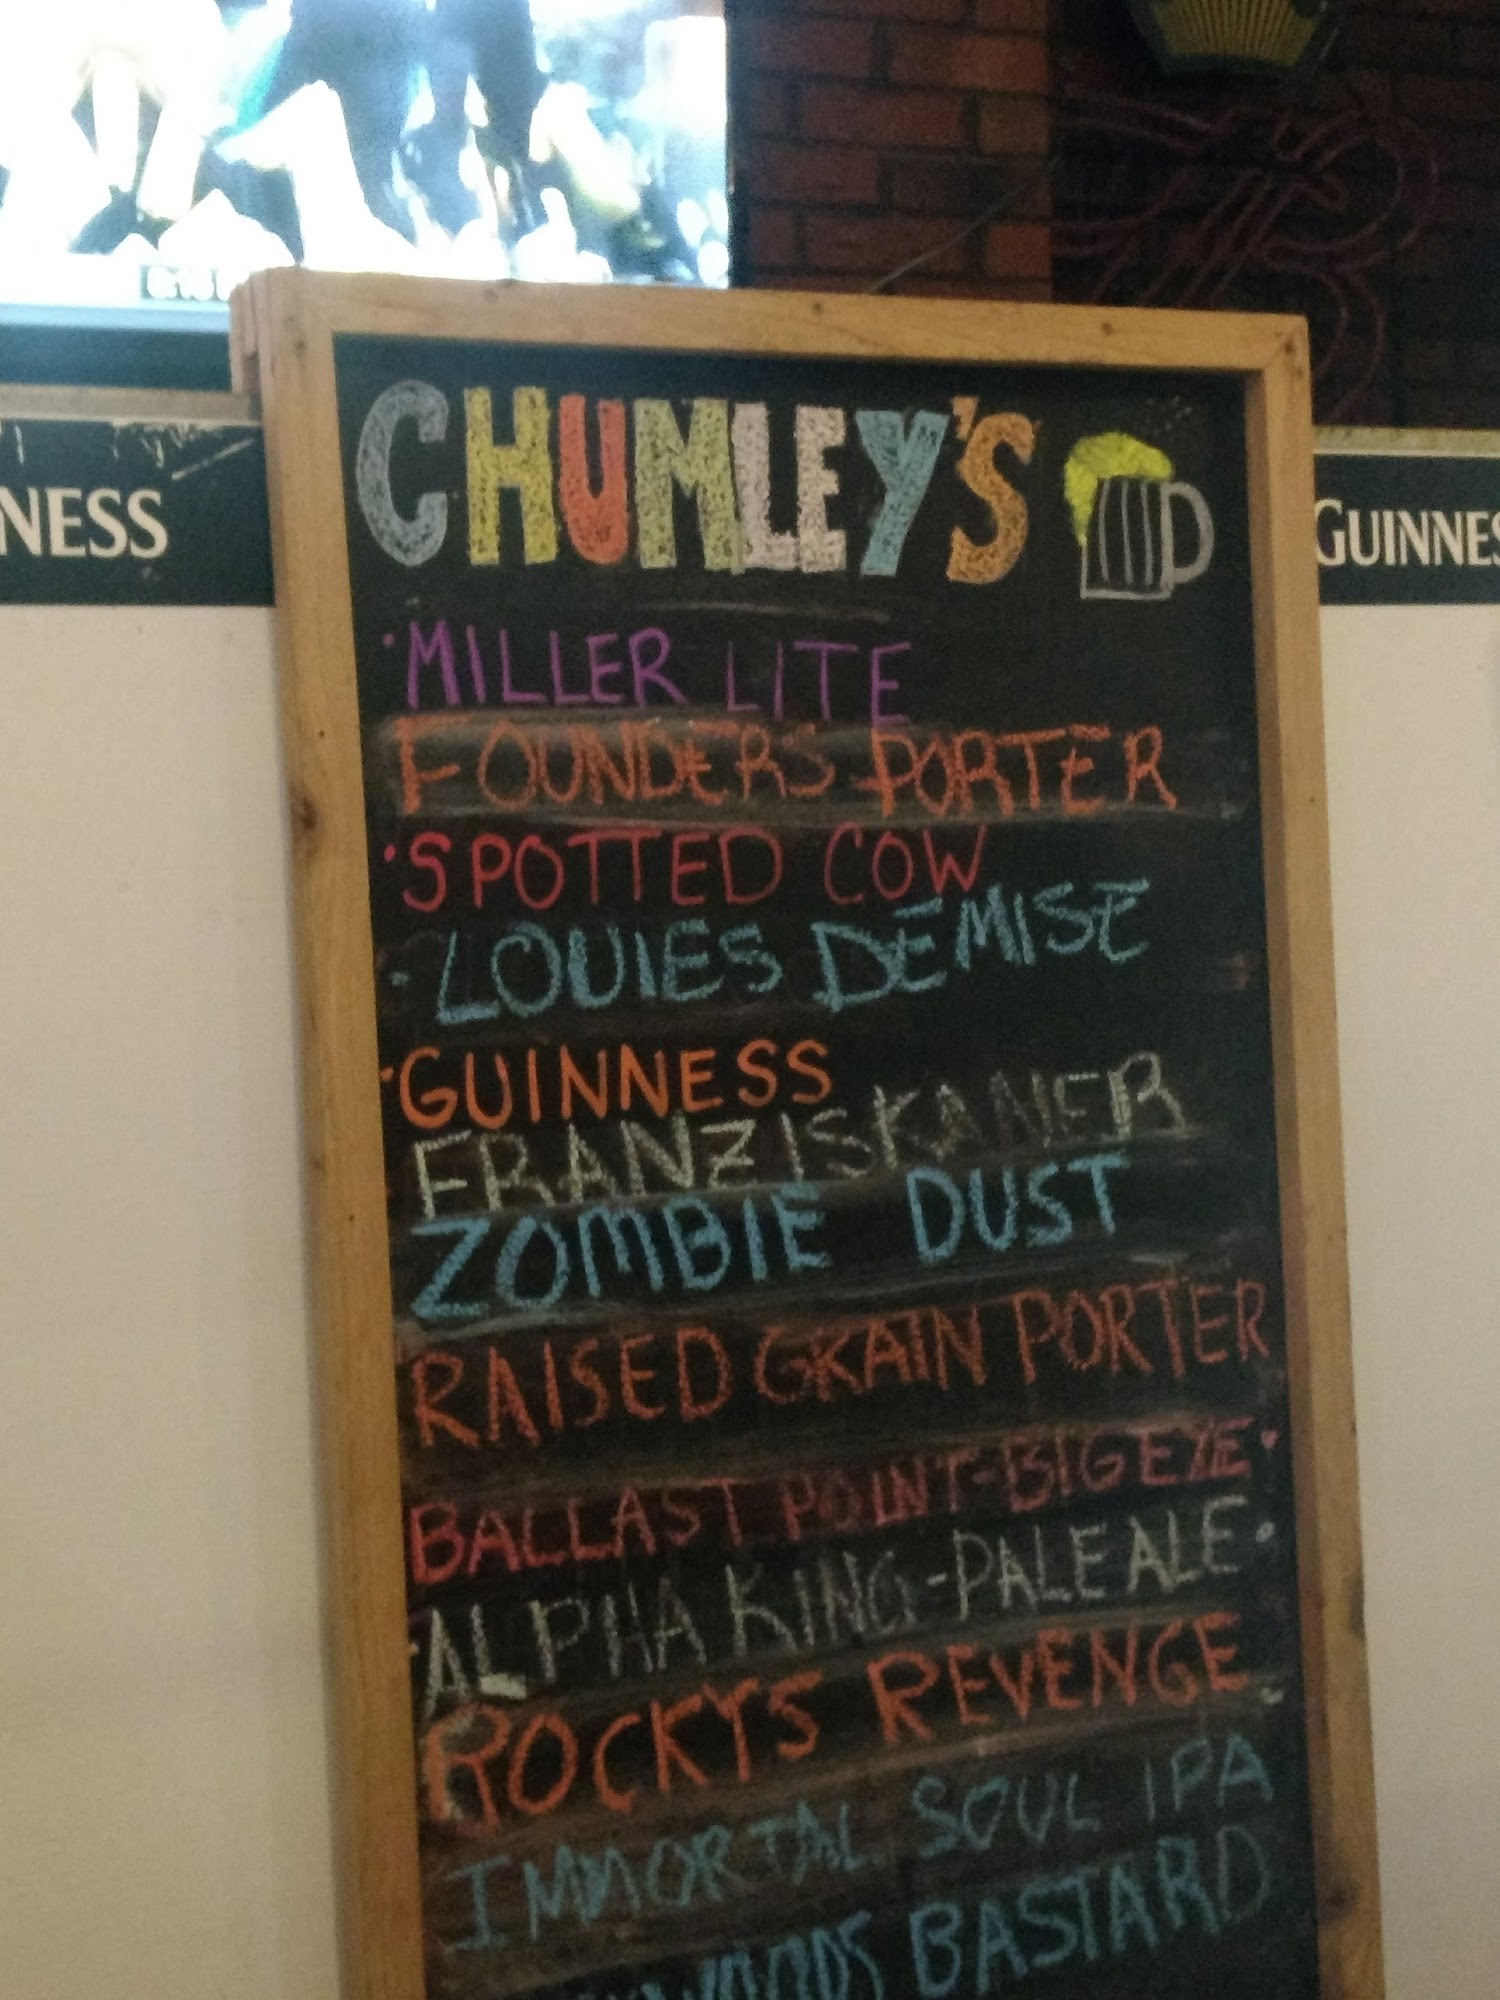 CHUMLEY'S
NESS
GUINNES
·MILLER LITE
FOUNDERS PORTER
·SPOTTED COW
·LOUIES DEMISE
·GUINNESS
FRANZISKANER
ZOMBIE DUST
RAISED GRAIN PORTER
BALLAST POINT-BIG EYE·
·ALPHA KING-PALE ALE·
ROCKYS REVENGE
IMMORTAL SOUL IPA
BASTARD